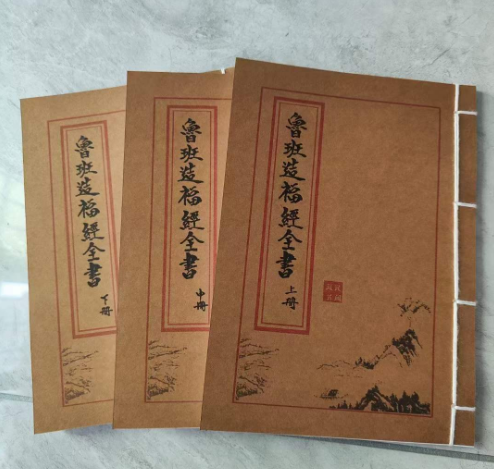 魯班造福經全書
上册
魯班造福經全書
中册
魯班造福經全書
下册